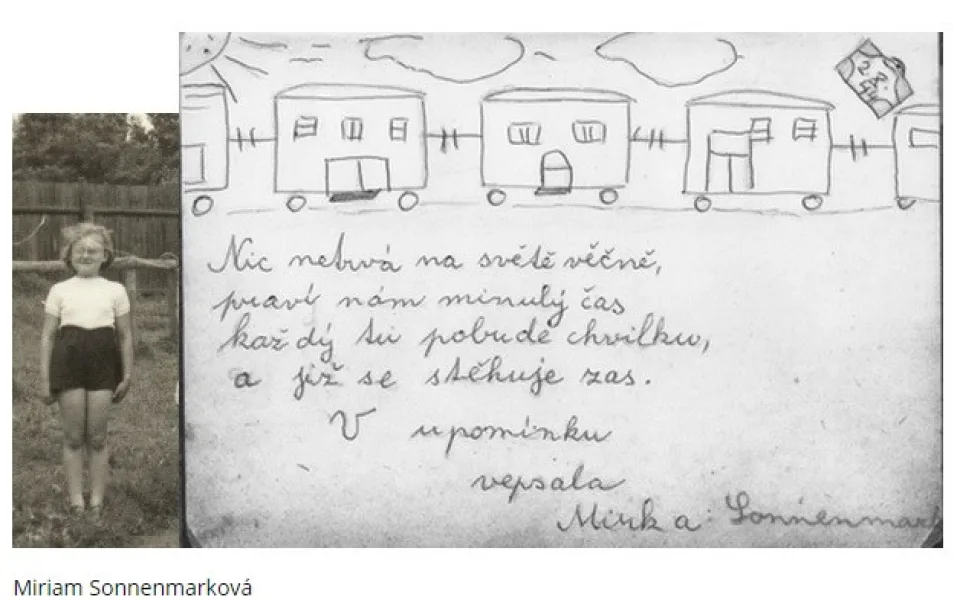 2 8.
44
Nic netrvá na světě věčně,
praví nám minulý čas
každý tu pobude chvilku,
a již se stěhuje zas.
V upomínku
vepsala
Mirka Sonnenmark
Miriam Sonnenmarková